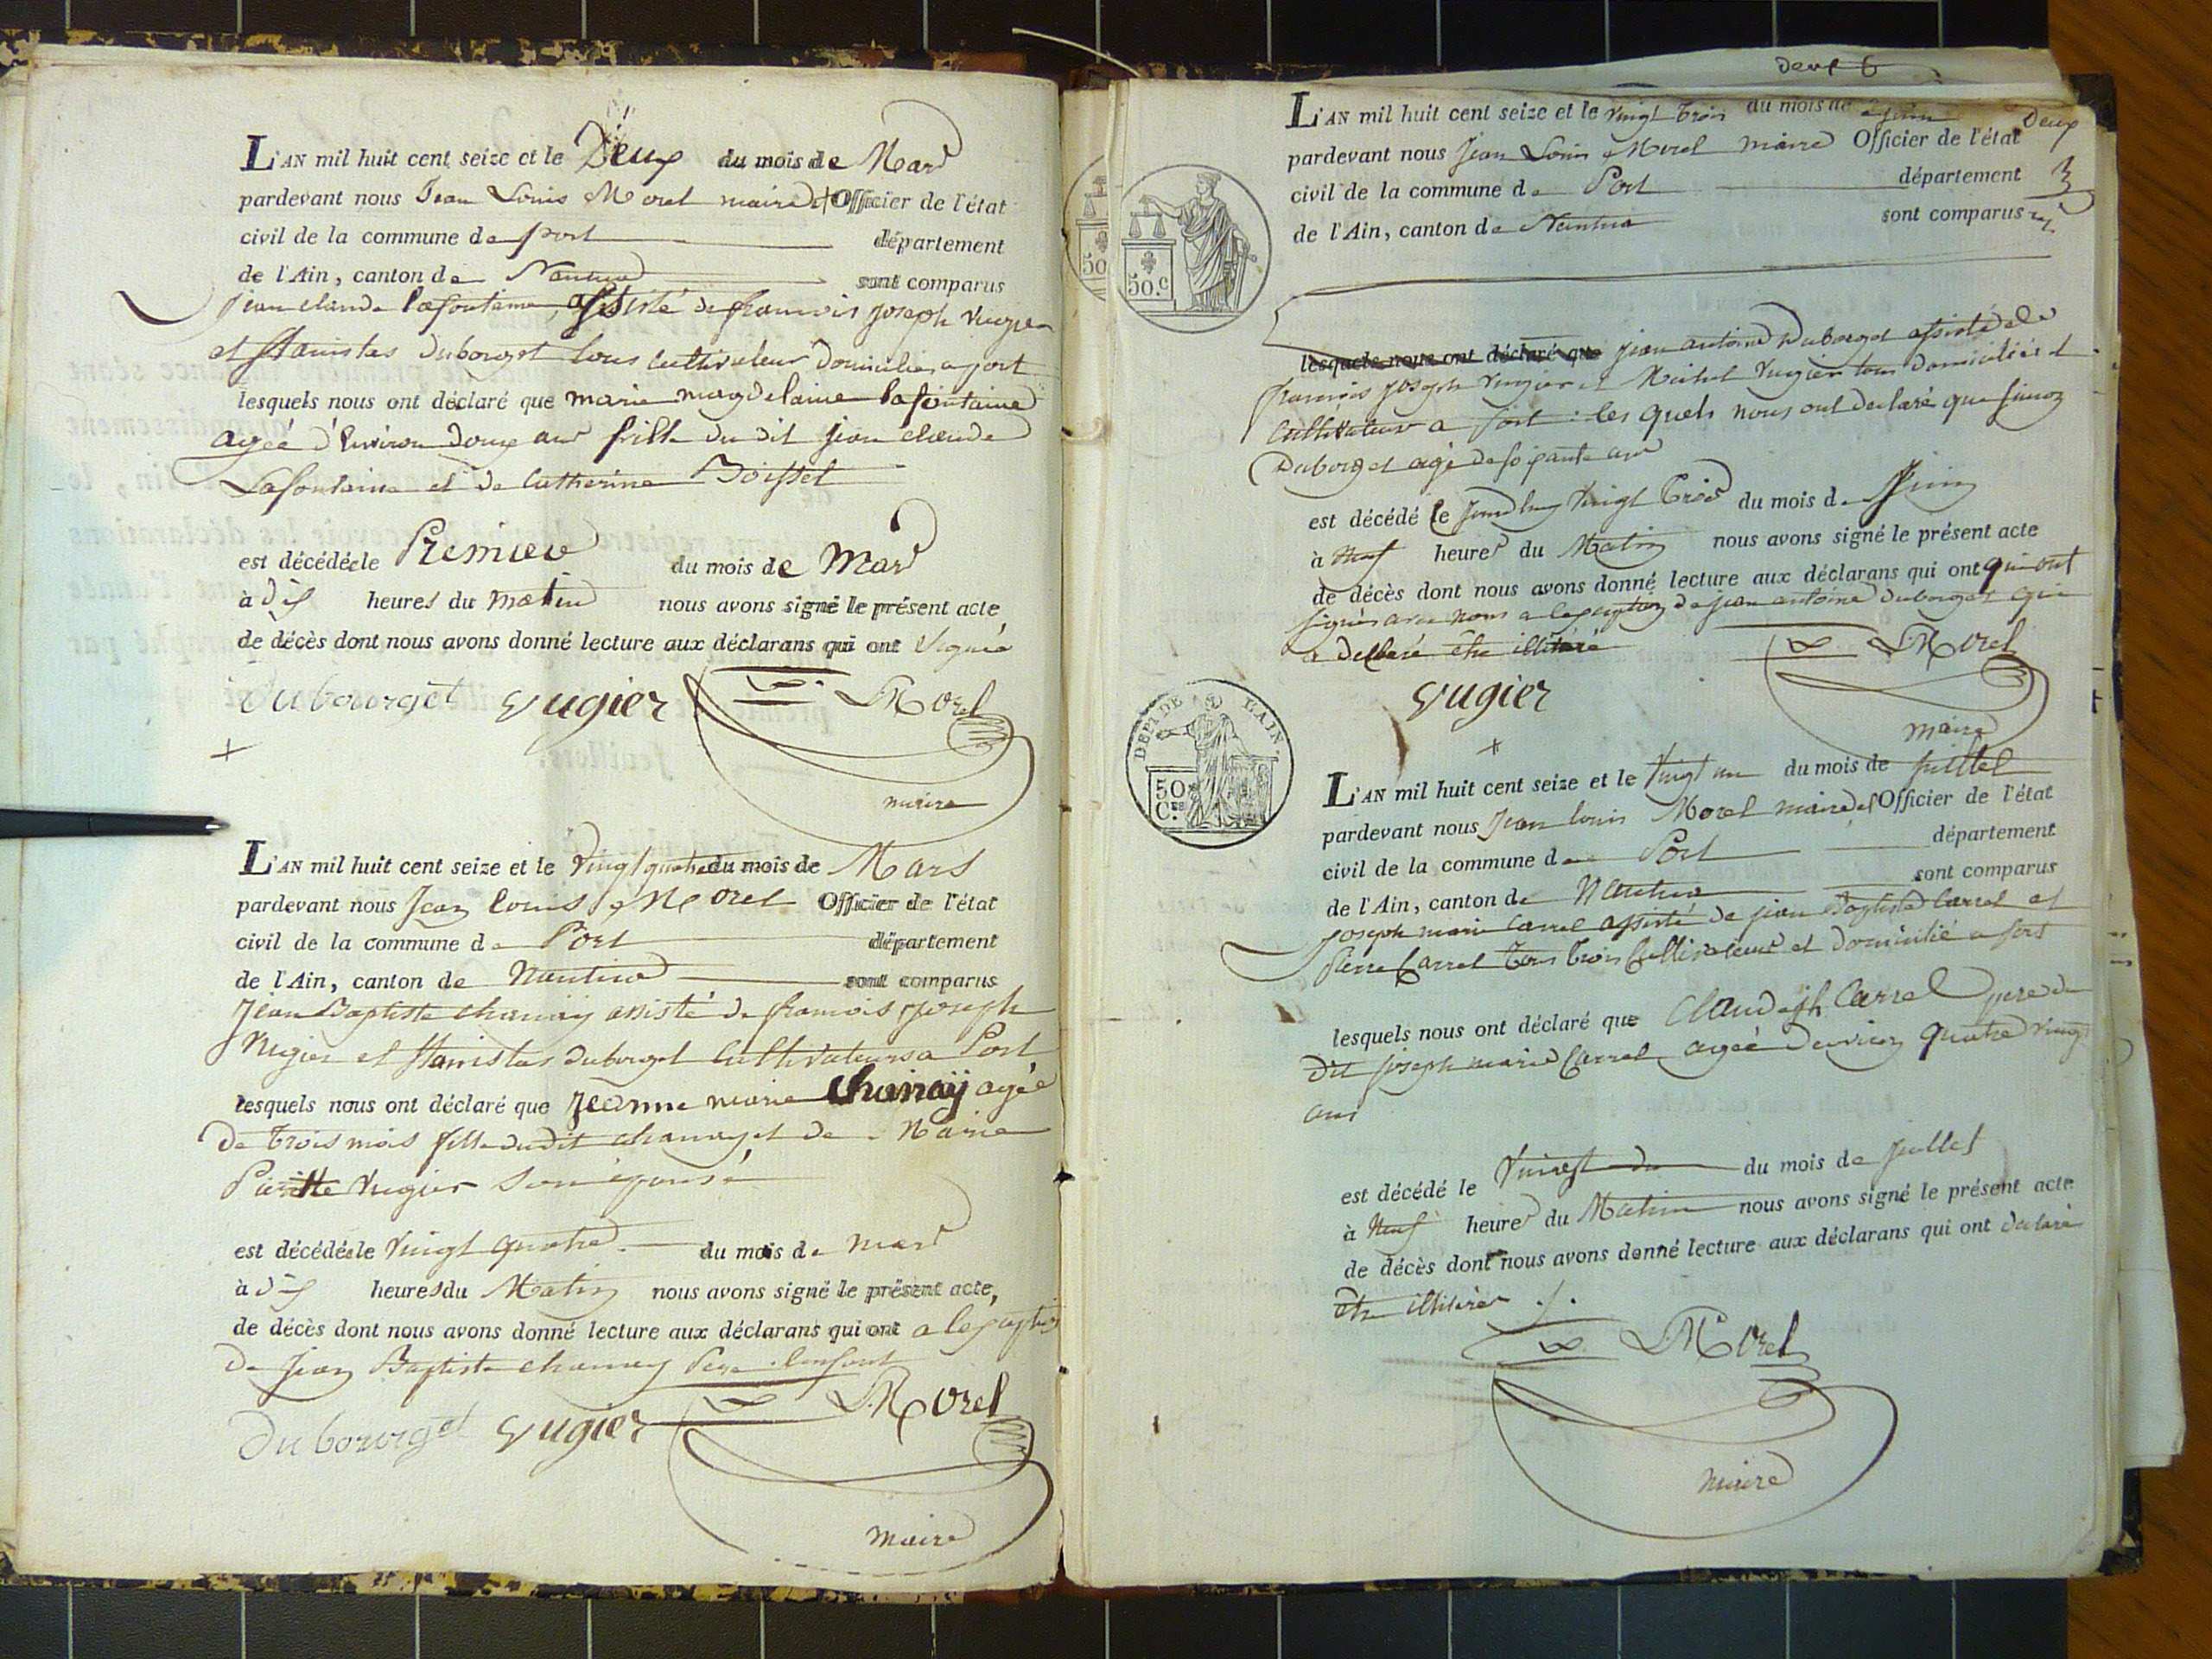 L'AN mil huit cent seize et le Deux du mois de Mars
pardevant nous Jean Louis Morel maire et Officier de l'état
civil de la commune de port département
de l'Ain, canton de Nantua sont comparus
jean claude lafontaine, assisté de francois joseph vugier
et stanislas duborget tous cultivateur domiciliés a port
lesquels nous ont déclaré que marie magdelaine lafontaine
agéé d'environ douze ans fille du dit jean claude
Lafontaine et de Catherine Boissel
est décédée le Premier du mois de Mars
à dix heures du matin nous avons signé le présent acte
de décès dont nous avons donné lecture aux déclarans qui ont signé
Dubourget vugier Morel
maire
L'AN mil huit cent seize et le vingt quatre du mois de Mars
pardevant nous Jean Louis Morel Officier de l'état
civil de la commune de Port département
de l'Ain, canton de Nantua sont comparus
Jean Baptiste chanaÿ assisté de francois joseph
Vugier et stanislas duborget Cultivateurs a Port
lesquels nous ont déclaré que jeanne marie chanaÿ agéé
de trois mois fille du dit chanay et de Marie
Pierrette Vugier son épouse
est décédée le vingt quatre du mois de mars
à dix heures du Matin nous avons signé le présent acte,
de décès dont nous avons donné lecture aux déclarans qui ont a lexception
de Jean Baptiste chanay Pere
Dubourget vugier Morel
maire
L'AN mil huit cent seize et le vingt trois du mois de juin Deux
pardevant nous Jean Louis Morel maire Officier de l'état
civil de la commune de Port département
de l'Ain, canton de Nantua sont comparus
50.c
lesquels nous ont déclaré que jean antoine Duborget assisté de
francois joseph vugier et Michel Vugier tous domiciliés et
Cultivateur a Port : les quels nous ont declaré que simon
Duborget agé de soixante ans
est décédé le jourdhuy vingt trois du mois de Juin
à Neuf heures du Matin nous avons signé le présent acte
de décès dont nous avons donné lecture aux déclarans qui ont qui ont
signés avec nous a lexception de jean antoine duborget qui
a declaré etre illitéré
vugier Morel
maire
DEPT DE L'AIN
50 Ces
L'AN mil huit cent seize et le vingt un du mois de juillet
pardevant nous Jean Louis Morel maire et Officier de l'état
civil de la commune de Port département
de l'Ain, canton de Nantua sont comparus
joseph marie Carrel assisté de jean Baptiste Carrel et
Pierre Carrel tous trois Cultivateurs et domicilié a port
lesquels nous ont déclaré que Claude jh Carrel pere du
dit joseph marie Carrel agéé denviron quatre vingt
ans
est décédé le du mois de juillet
à Neuf heures du Matin nous avons signé le présent acte
de décès dont nous avons donné lecture aux déclarans qui ont declaré
etre illitéré
Morel
maire